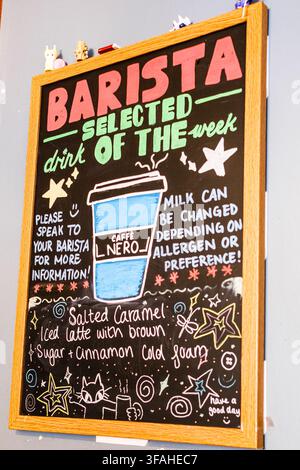 BARISTA
SELECTED
drink OF THE week
PLEASE
SPEAK TO
YOUR BARISTA
FOR MORE
INFORMATION!
CAFFÈ
NERO
MILK CAN
BE CHANGED
DEPENDING ON
ALLERGEN OR
PREFERENCE!
Salted Caramel
Iced latte with brown
Sugar + Cinnamon Cold foam
have a
good day
alamy
Image ID: 3FAHEC7
www.alamy.com